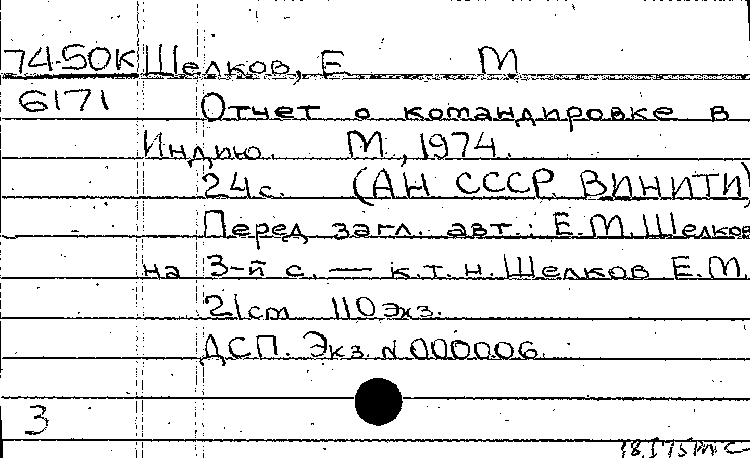 74-50К Шелков, Е М
6171 Отчет о командировке в
Индию. М., 1974.
24 с. (АН СССР. ВИНИТИ)
Перед загл. авт.: Е.М.Шелков
на 3-й с. — к.т.н. Шелков Е.М.
21 cm 110 экз.
ДСП. Экз. N 000006.
3